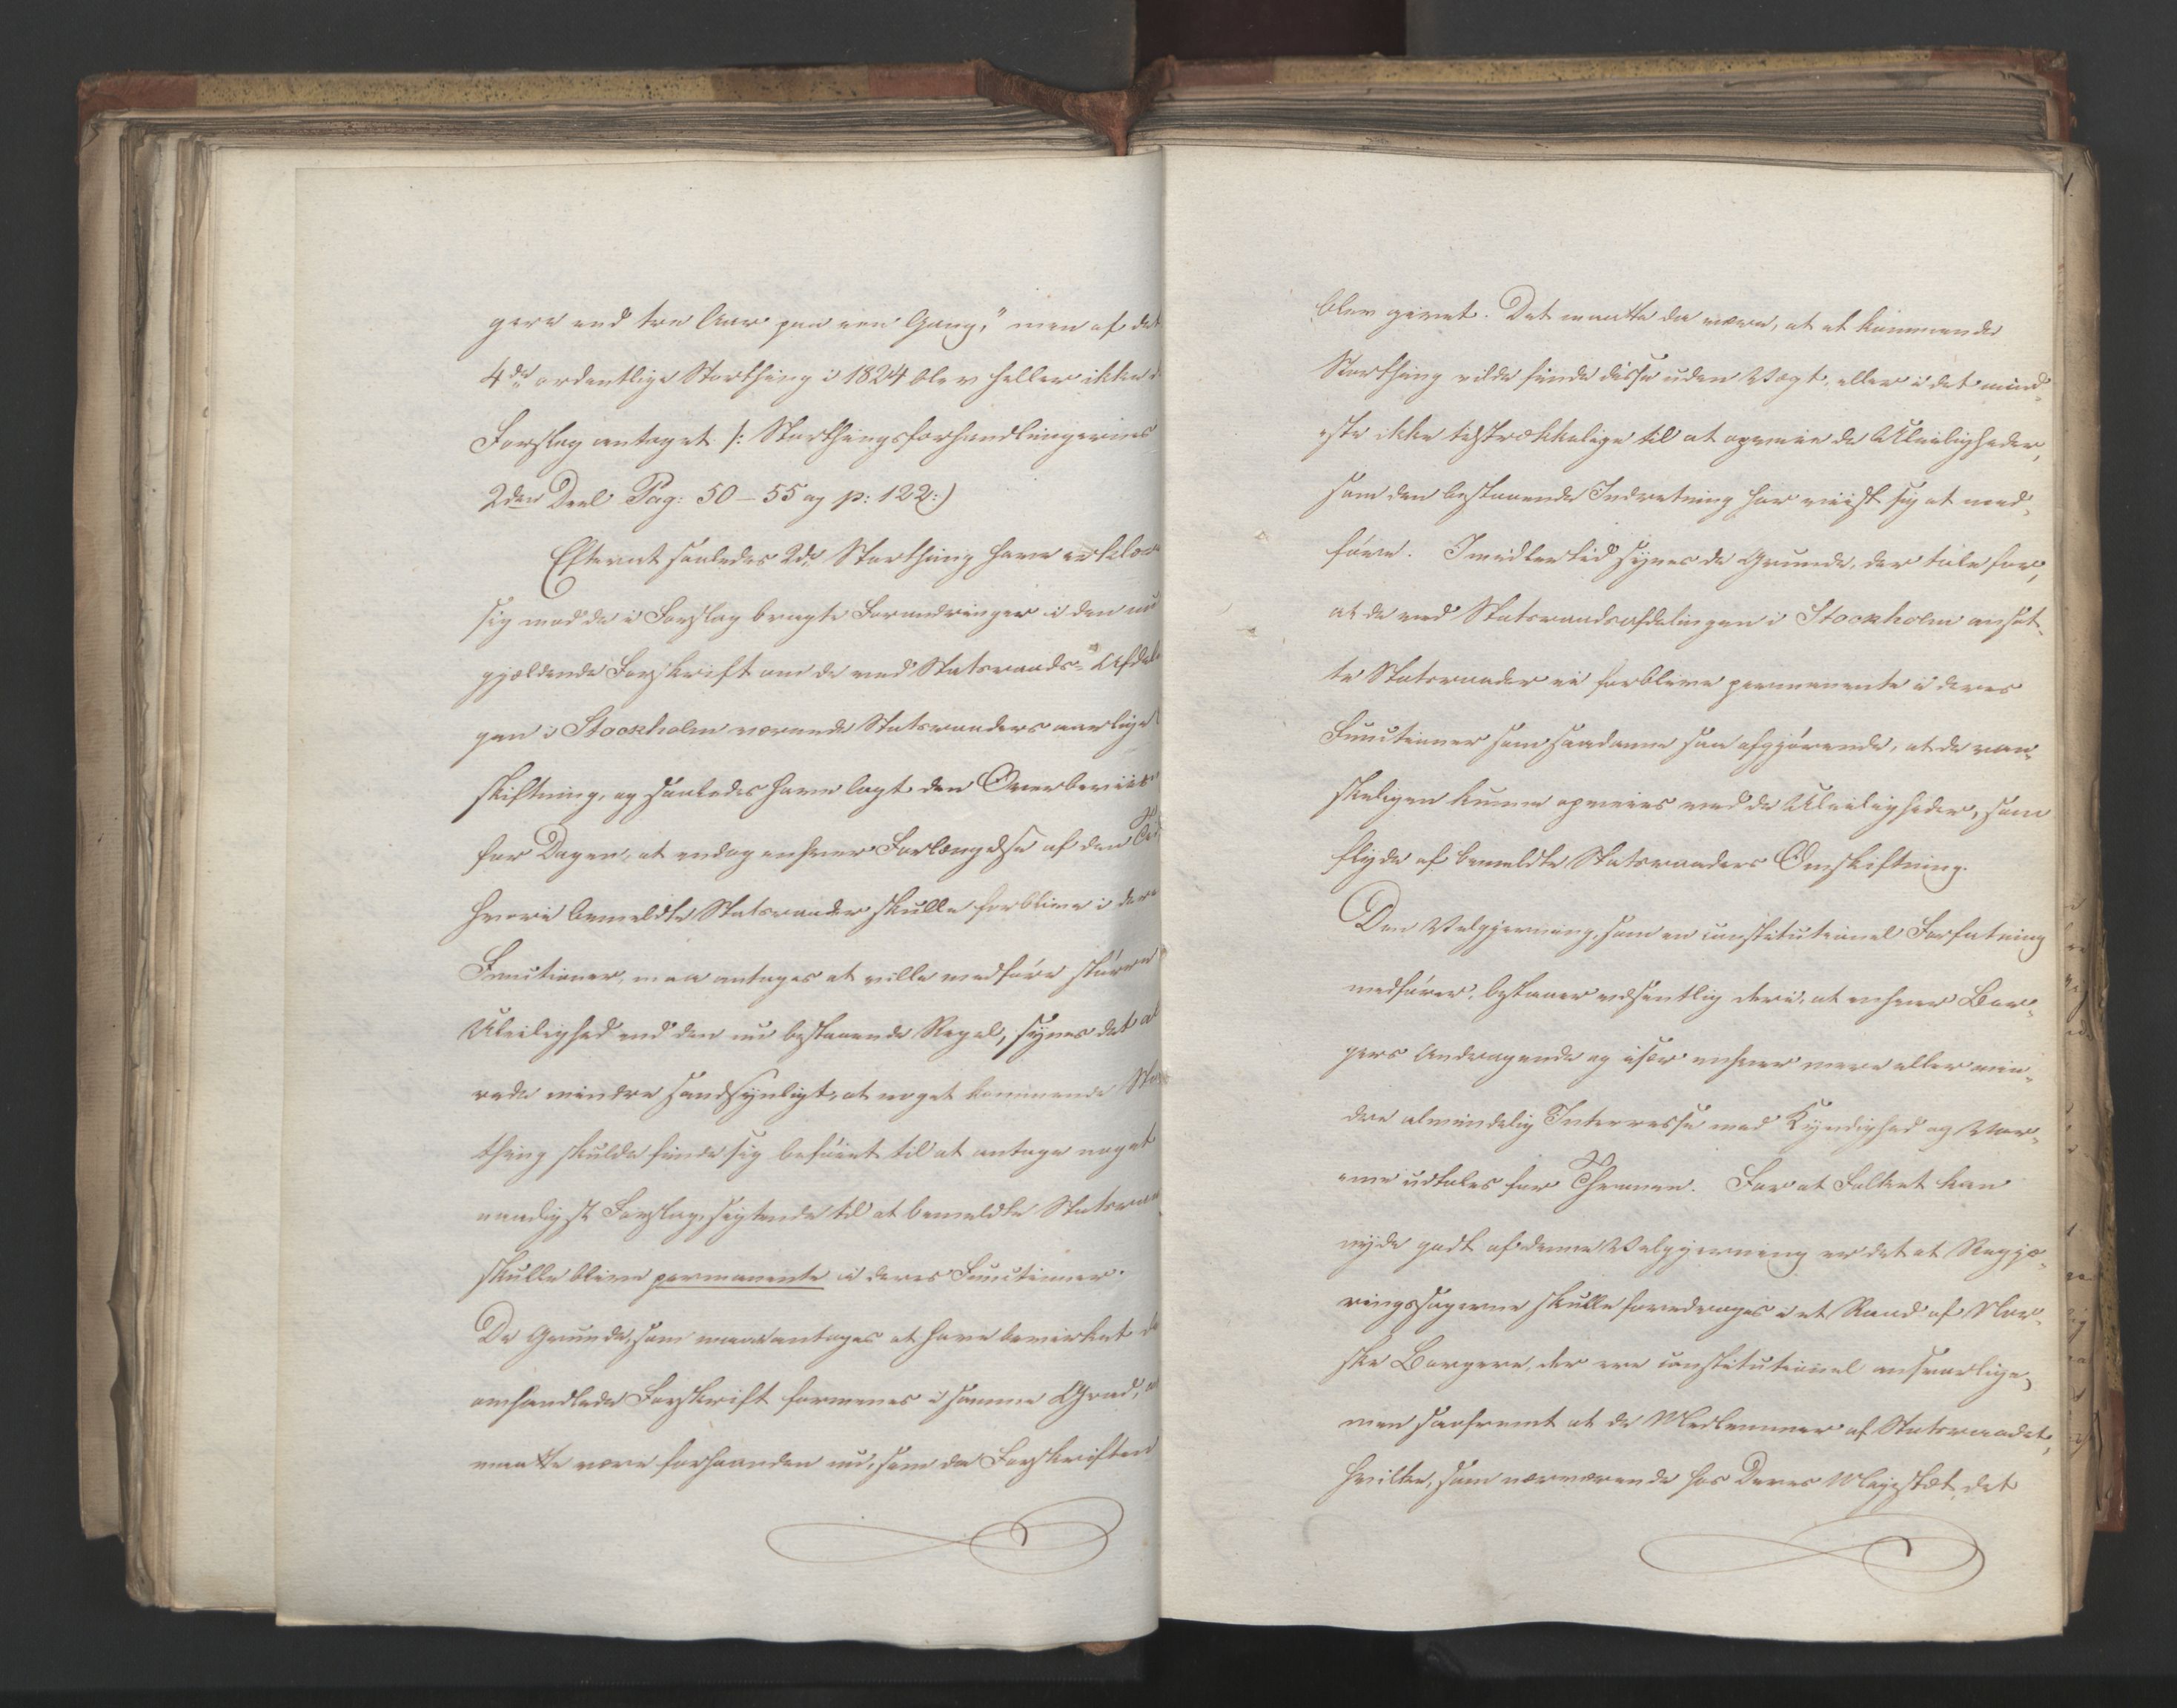 gere end tre Aar paa een Gang," men af det
4de ordentlige Storthing i 1824 blev heller ikke d
Forslag antaget /: Storthingsforhandlingernes
2den Deel Pag: 50 – 55 og p: 122:)
Efterat saaledes 2de Storthing have erklær
sig mod de i Forslag bragte Forandringer i den nu
gjældende Forskrift om de ved Statsraads-Afdel
gen i Stockholm værende Statsraaders aarlige
skiftning, og saaledes have lagt den Overbeviis
for Dagen, at endog enhver Forlængelse af den
hvori bemeldte Statsraader skulle forblive i dere
Functioner, maa antages at ville medføre større
Uleilighed end den nu bestaaende Regel, synes det al
rede mindre sandsynligt, at noget kommende Stor
thing skulde finde sig beføiet til at antage noget
naadigst Forslag, sigtende til at bemeldte Statsraa
skulle blive permanente i deres Functioner.
De Grunde, som maae antages at have bevirket de
omhandlede Forskrift formenes i samme Grad, a
maatte være forhaanden nu, som da Forskriften
blev givet. Det maatte da være, at et kommende
Storthing vilde finde disse uden Vægt, eller i det mind-
ste ikke tilstrækkelige til at opveie de Uleiligheder,
som den bestaaende Indretning har viist sig at med-
føre. Imidlertid synes de Grunde, der tale for,
at de ved Statsraadsafdelingen i Stockholm ansat-
te Statsraader ei forblive permanente i deres
Functioner som saadanne saa afgjørende, at de van-
skeligen kunne opveies ved de Uleiligheder, som
flyde af bemeldte Statsraaders Omskiftning.
Den Velgjerning, som en constitutionel Forfatning
medfører, bestaaer væsentlig deri, at enhver Bor-
gers Andragende og især enhver mere eller min-
dre almindelig Interesse med Kyndighed og Var-
me udtales for Thronen. For at Folket kan
nyde godt af denne Velgjerning er det at Regje-
ringssagerne skulle foredrages i et Raad af Nor-
ske Borgere, der ere constitutionel ansvarlige,
men saafremt at de Medlemmer af Statsraadet,
hvilke, som nærværende hos Deres Majestæt, det